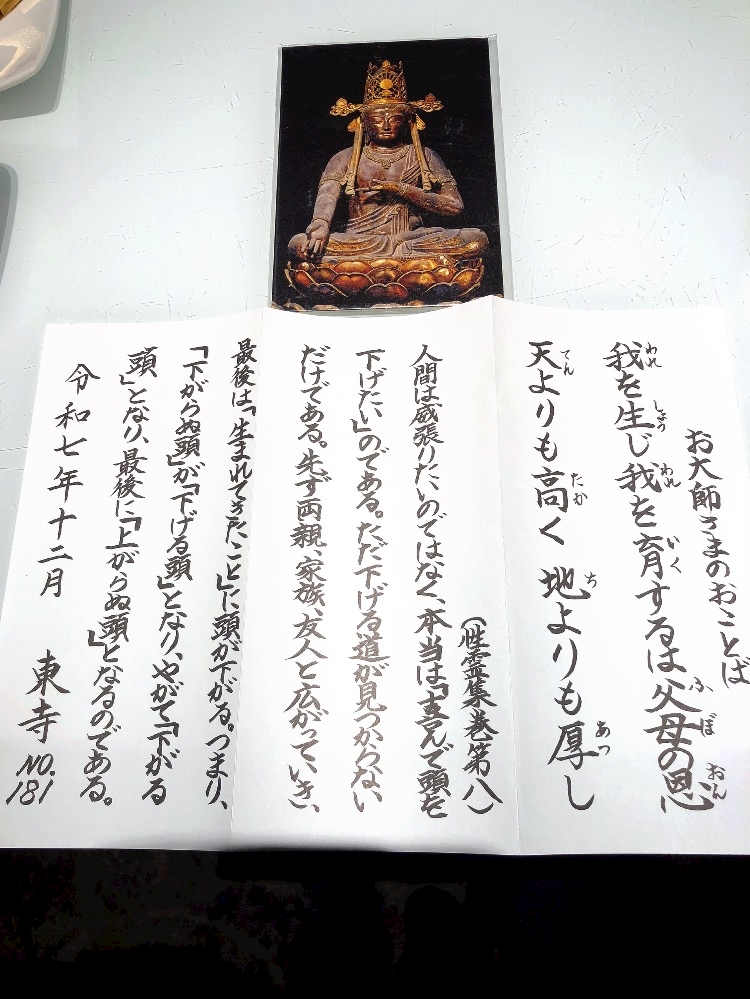 お大師さまのおことば
我を生じ我を育するは父母の恩
われ しょう われ いく ふ ぼ おん
天よりも高く 地よりも厚し
てん たむ ち あつ
(性霊集巻第八)
人間は威張りたいのではなく、本当は「喜んで頭を
下げたい」のである。ただ下げる道が見つからない
だけである。先ず両親、家族、友人と広がっていき、
最後は「生まれてきたこと」に頭が下がる。つまり、
「下がらぬ頭」が「下げる頭」となり、やがて「下がる
頭」となり、最後に「上がらぬ頭」となるのである。
令和七年十二月 東寺 NO.181